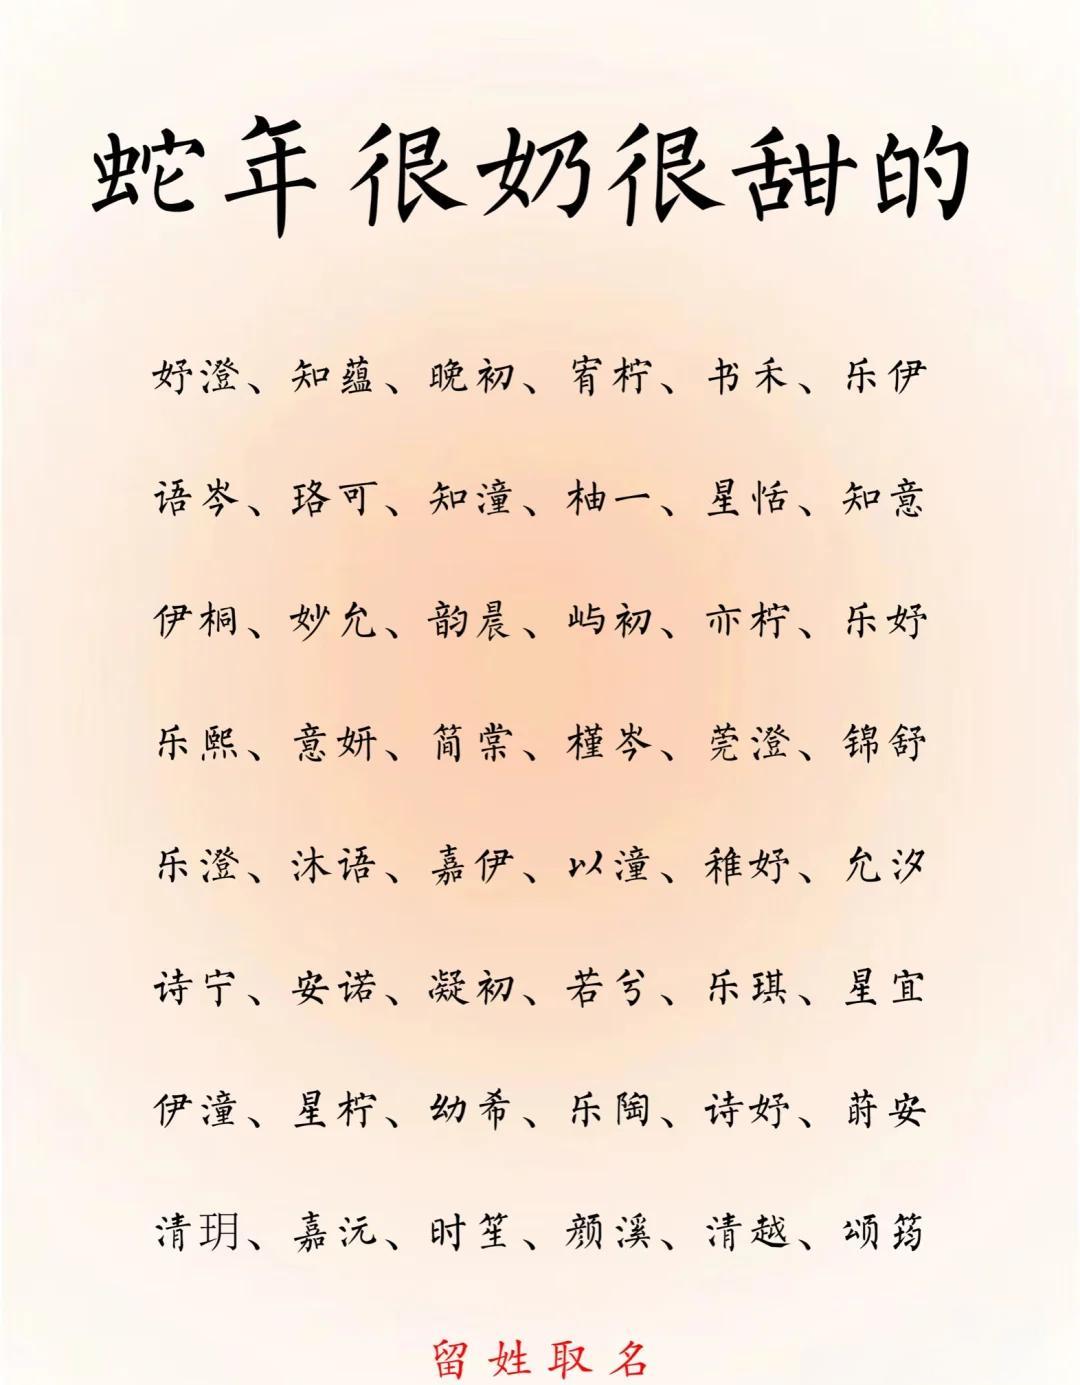 蛇年很奶很甜的
妤澄、知蕴、晚初、宥柠、书禾、乐伊
语岑、珞可、知潼、柚一、星恬、知意
伊桐、妙允、韵晨、屿初、亦柠、乐妤
乐熙、意妍、简棠、槿岑、莞澄、锦舒
乐澄、沐语、嘉伊、以潼、稚妤、允汐
诗宁、安诺、凝初、若兮、乐琪、星宜
伊潼、星柠、幼希、乐陶、诗妤、莳安
清玥、嘉沅、时笙、颜溪、清越、颂筠
留姓取名